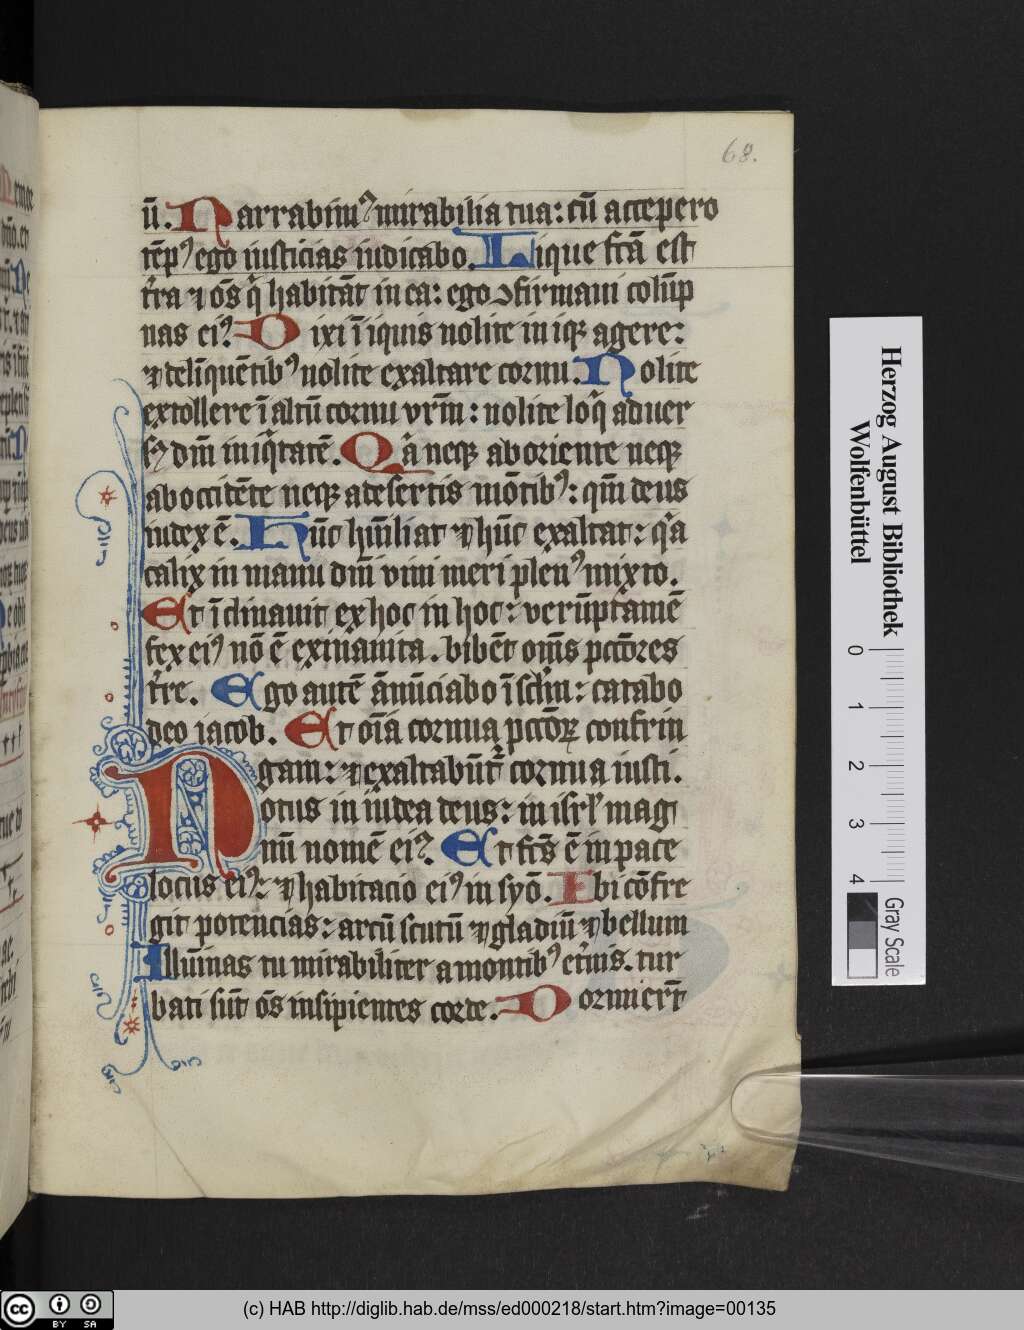 68.
ū. Narrabim⁹ mirabilia tua: cū accepero
tēp⁹ ego iusticias iudicabo. Liq̄ue fc̄a est
t̄ra ⁊ oēs q̄ habitāt in ea: ego ꝯfirmaui colūp
nas ei⁹. Dixi īiquis nolite iniqꝫ agere:
⁊ delīquētib⁹ nolite exaltare cornu. Nolite
extollere ī altū cornu vr̄m: nolite loq̄ aduer
dm̄ iniq̄tatē. Qā neqꝫ ab oriente neqꝫ
ab occidēte neqꝫ a desertis mōtib⁹: qm̄ deus
iudex ē. Hūc hūiliat ⁊ hūc exaltat: qa
calix in manu dm̄ vini meri plen⁹ mixto.
Et īclinauit ex hoc in hoc: verūptamē
fex ei⁹ nō ē exinanita. bibēt om̄s pctōres
t̄re. Ego autē ānūciabo ī sclm̄: cantabo
deo iacob. Et oīa cornua pctōꝝ confrin
gam: ⁊ exaltabūt̄ cornua iusti.
Notus in iudea deus: in isrl̄ mag
nū nomē ei⁹. Et fc̄s ē in pace
locus ei⁹: ⁊ habitacio ei⁹ in syō. Ibi cōfre
git potencias: arcū scutū ⁊ gladiū ⁊ bellum
Illūinas tu mirabiliter a montib⁹ et̄nis. tur
bati sūt oēs insipientes corde. Dormier̄t
Herzog August Bibliothek
Wolfenbüttel
0 1 2 3 4
Gray Scale
cc BY SA
(c) HAB http://diglib.hab.de/mss/ed000218/start.htm?image=00135